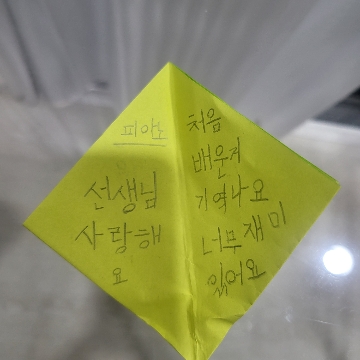 피아노
선생님
사랑해
요
처음
배운게
기억나요
너무재미
있어요